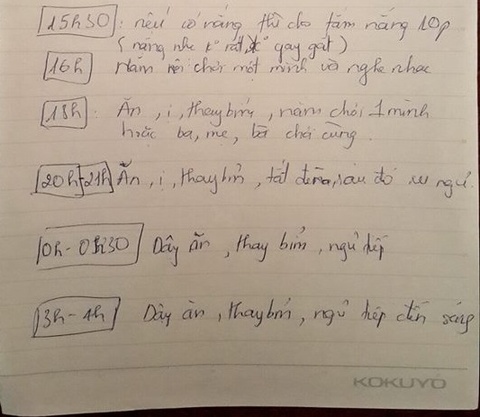 15h30 : nếu có nắng thì cho tắm nắng 10p
(nắng nhẹ k° rát, k° gay gắt)
16h Nằm nôi chơi một mình và nghe nhạc
18h : Ăn, ị, thay bỉm, nằm chơi 1 mình
hoặc ba, mẹ, bà chơi cùng.
20h-21h Ăn, ị, thay bỉm, tắt đèn, sau đó ngủ.
0h - 0h30 Dậy ăn, thay bỉm, ngủ tiếp
3h - 4h Dậy ăn, thay bỉm, ngủ tiếp đến sáng
KOKUYO